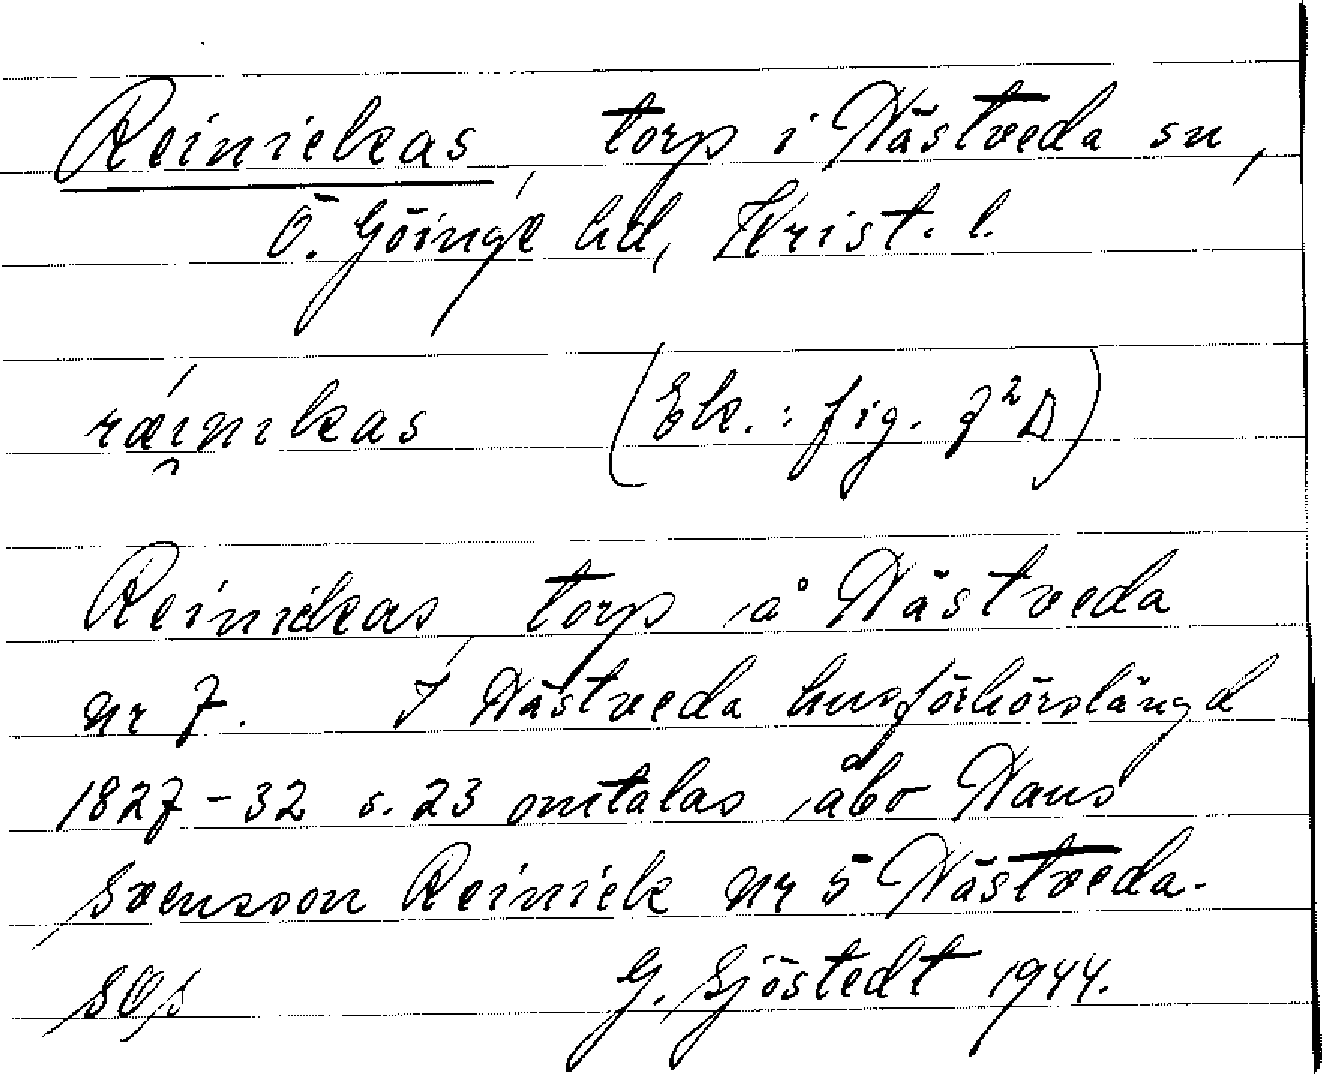 Reinickas, torp i Nästveda sn,
Ö. Göinge hd, Krist. l.
ræi̯nikas (Ek.: fig. 7² D)
Reinickas, torp å Nästveda
nr 7. I Nästveda husförhörslängd
1827-32 s. 23 omtalas åbo Måns
Svensson Reinick nr 5 Nästveda.
G. Sjöstedt 1944.